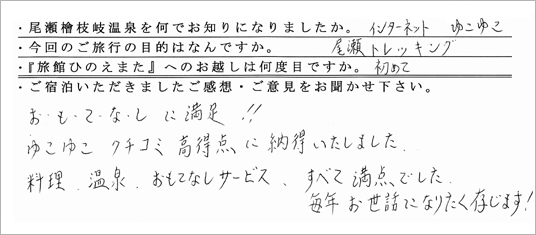 ・尾瀬檜枝岐温泉を何でお知りになりましたか。 インターネット ゆこゆこ
・今回のご旅行の目的はなんですか。 尾瀬トレッキング
・『旅館ひのえまた』へのお越しは何度目ですか。 初めて
・ご宿泊いただきましたご感想・ご意見をお聞かせ下さい。
お・も・て・な・し に満足 !!
ゆこゆこ クチコミ 高得点に納得いたしました.
料理、温泉、おもてなしサービス、すべて満点でした.
毎年お世話になりたく存じます!